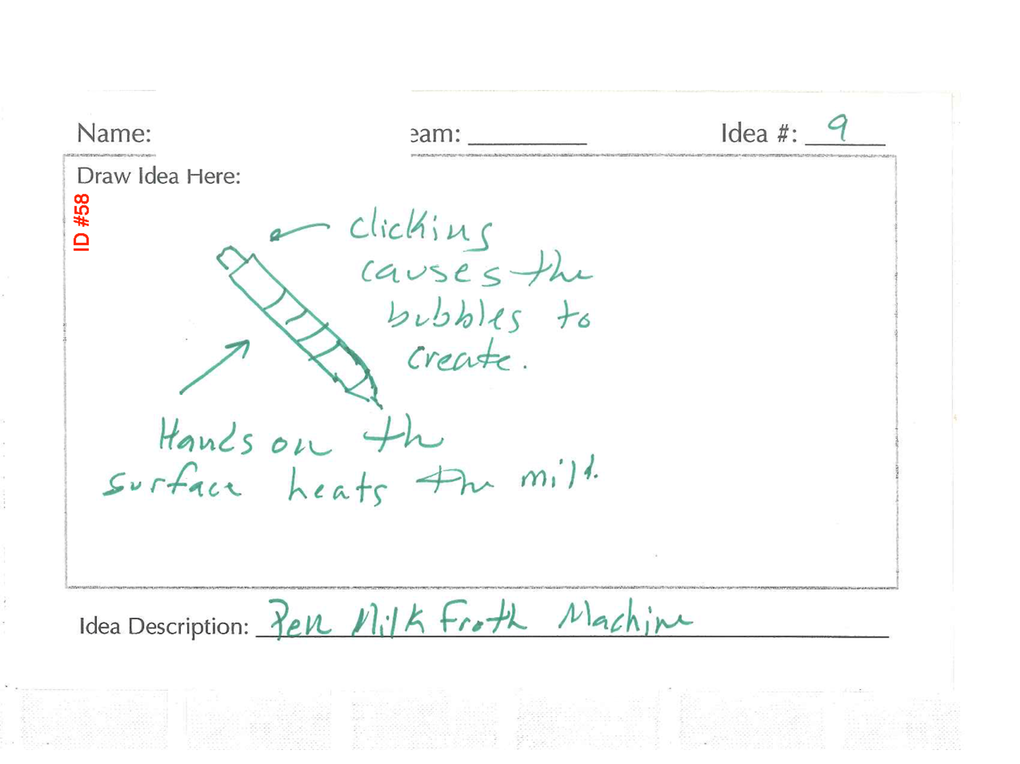 Name: eam: Idea #: 9
Draw Idea Here:
ID #58
clicking
causes the
bubbles to
create.
Hands on th
surface heats the milk.
Idea Description: Pen Milk Froth Machine